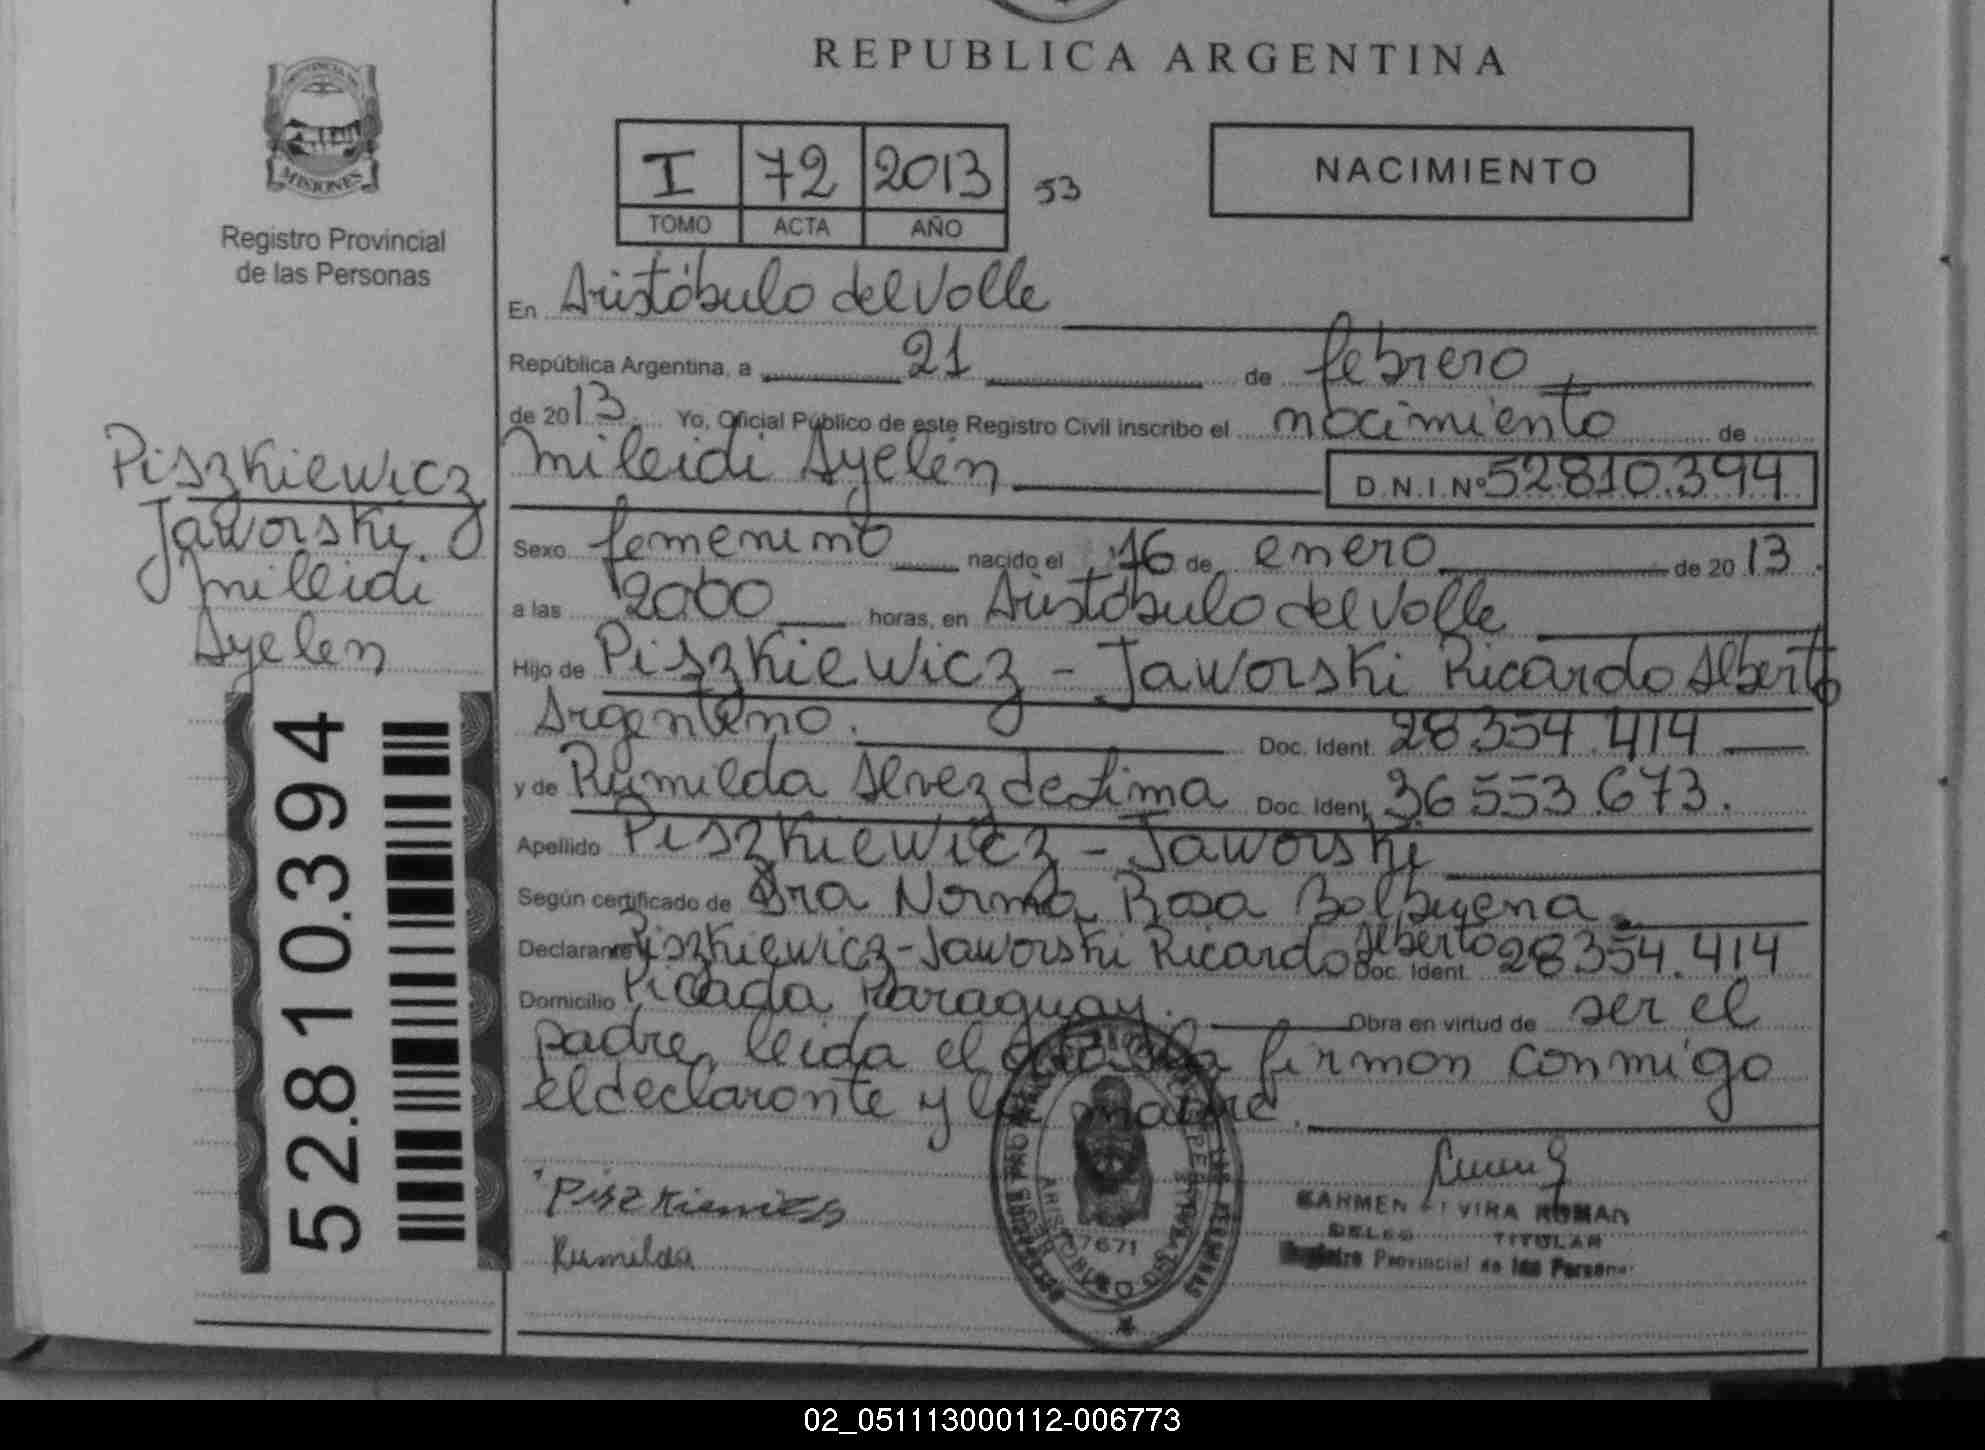 REPUBLICA ARGENTINA
MISIONES
Registro Provincial
de las Personas
I 72 2013 53
TOMO ACTA AÑO
NACIMIENTO
En Aristóbulo del Valle
República Argentina, a 21 de febrero
de 2013 Yo, Oficial Público de este Registro Civil inscribo el nacimiento de
Mileidi Ayelén D.N.I.Nº 52.810.394
Piszkiewicz
Jaworski
Mileidi
Ayelen
52.810.394
Sexo femenino nacido el 16 de enero de 2013.
a las horas, en Aristóbulo del Valle
Hijo de Piszkiewicz - Jaworski Ricardo Alberto
Argentino. Doc. Ident. 28.354.414
y de Rumilda Alvez de Lima Doc. Ident. 36.553.673.
Apellido Piszkiewicz - Jaworski
Según certificado de Dra Norma Rosa Balbuena.
Declarante Piszkiewicz-Jaworski Ricardo Alberto Doc. Ident. 28.354.414
Domicilio Picada Paraguay. Obra en virtud de ser el
padre, leida el acta la firman conmigo
el declarante y la madre.
Piszkiewicz
Rumilda
7671
CARMEN ELVIRA ROMAN
TITULAR
Registro Provincial de las Personas
02_051113000112-006773